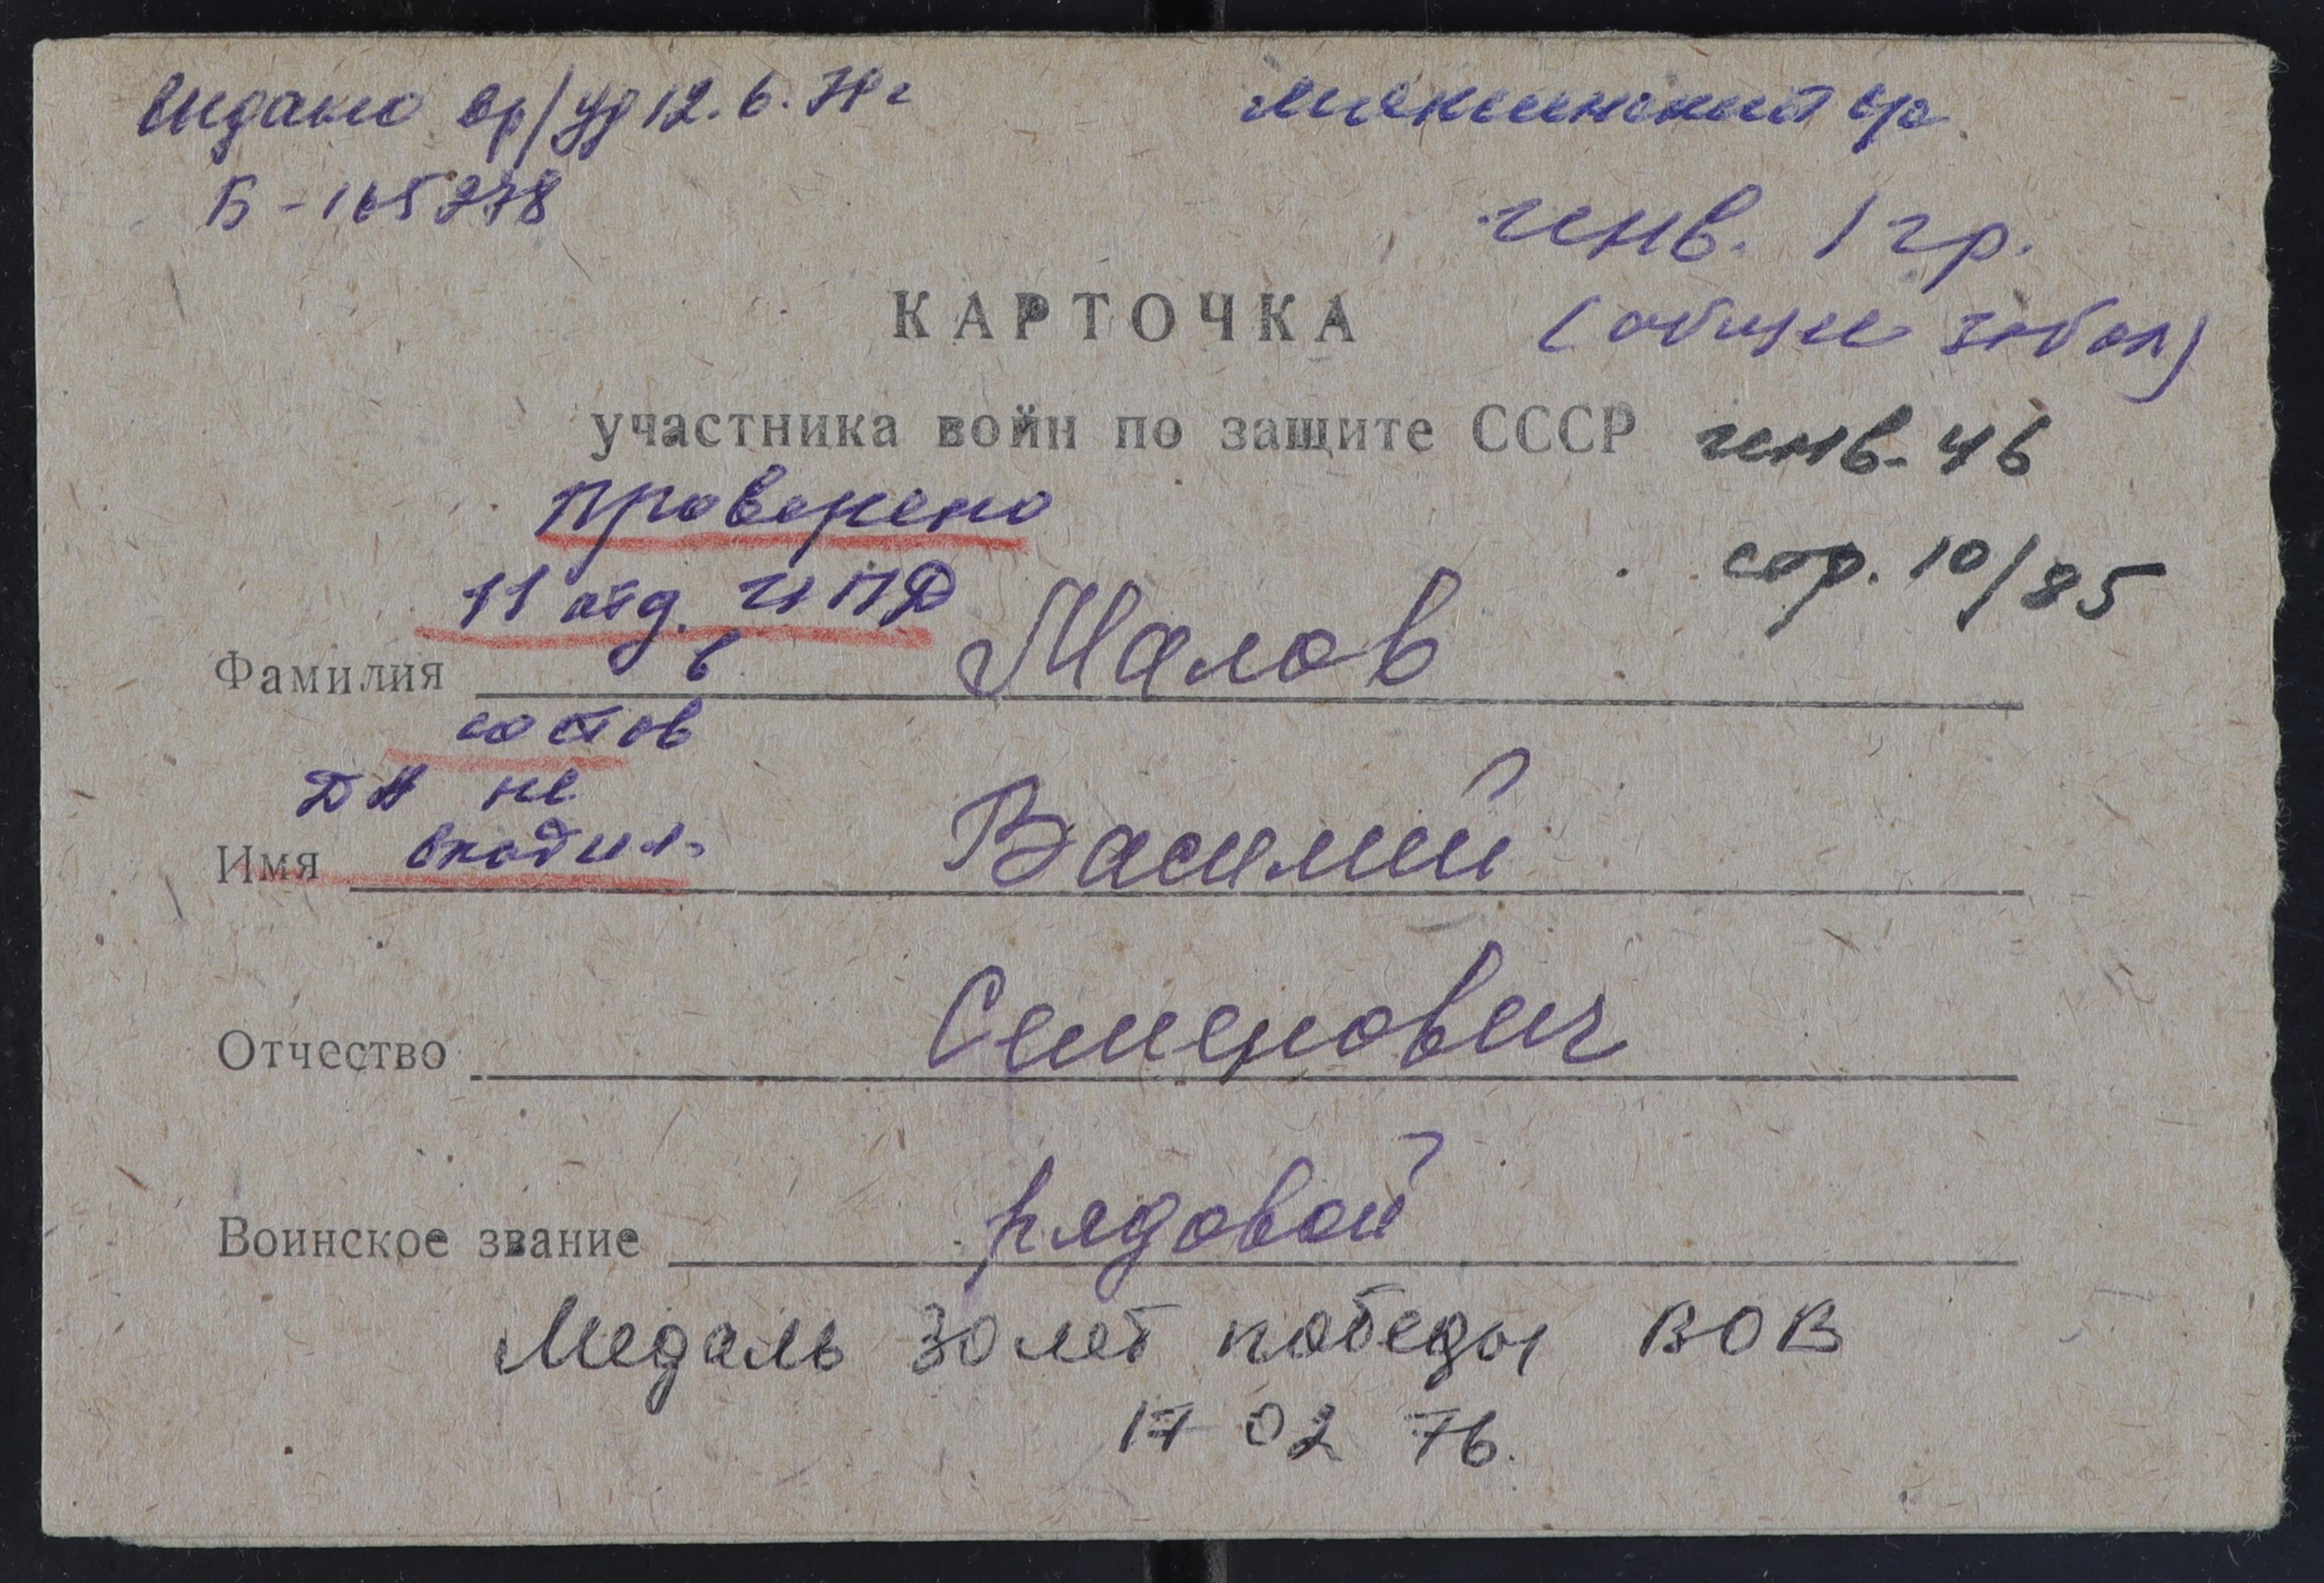 Выдано вр/уд 12.6.79г
Б-165278
инв. 1 гр.
(общее забол)
КАРТОЧКА
участника войн по защите СССР
инв-46
проверено
11 отд. ИПД
сор. 10/85
в
Фамилия Малов
состов
ДА не
Имя входил Василий
Отчество Семенович
Воинское звание рядовой
Медаль 30 лет победы ВОВ
17 02 76.